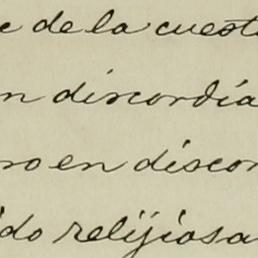 e de la cuest
n discordia
ro en discor
ido relijiosa